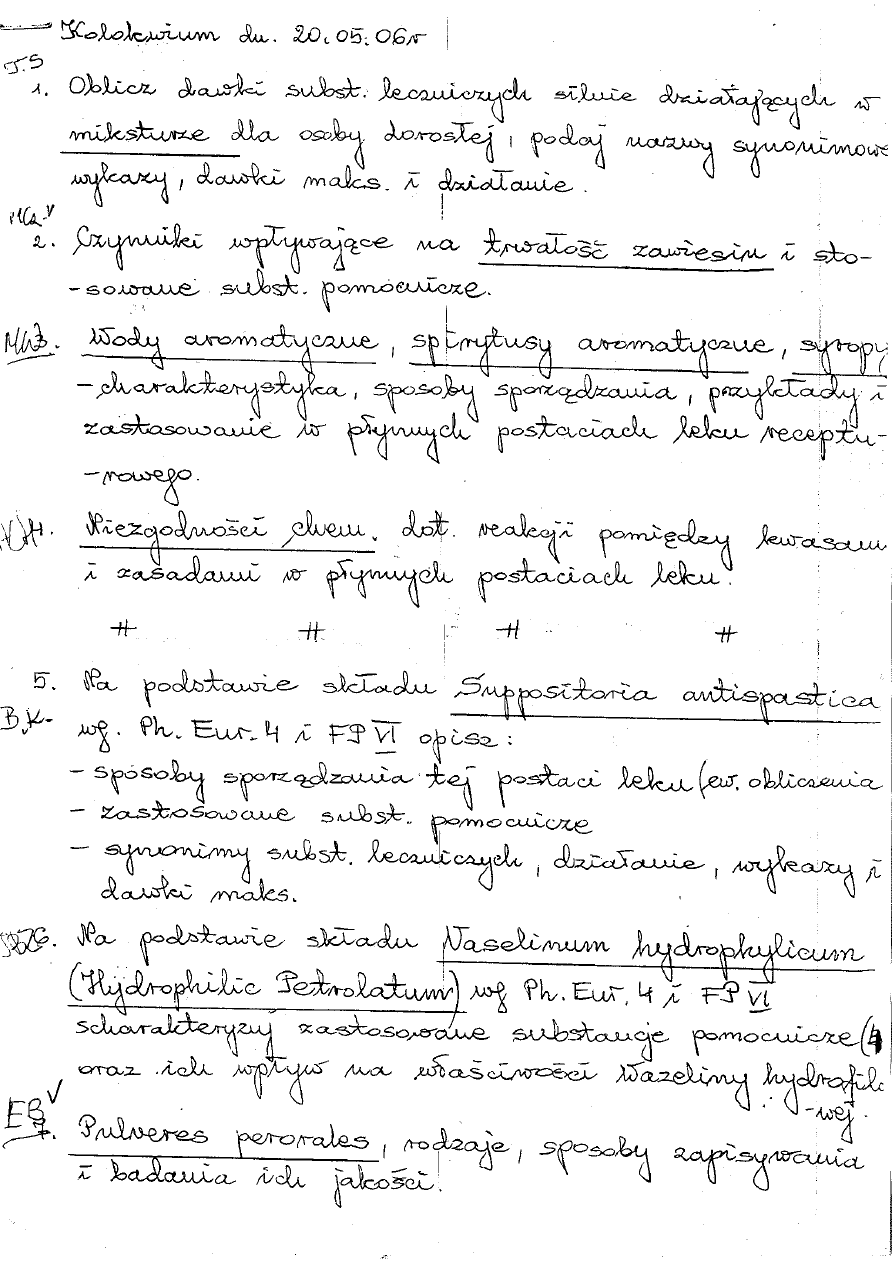 Kolokwium dn. 20.05.06r
J.S
1. Oblicz dawki subst. leczniczych silnie działających w
miksturze dla osoby dorosłej, podaj nazwy synonimowe
wykazy, dawki maks. i działanie.
2. Czynniki wpływające na trwałość zawiesin i sto-
-sowane subst. pomocnicze.
3. Wody aromatyczne, spirytusy aromatyczne, syropy
-charakterystyka, sposoby sporządzania, przykłady i
zastosowanie w płynnych postaciach leku receptu-
-rowego.
4. Niezgodności chem. dot. reakcji pomiędzy kwasami
i zasadami w płynnych postaciach leku.
# # # #
5. Na podstawie składu Suppositoria antispastica
B.K-
wg. Ph. Eur. 4 i FP VI opisz:
- sposoby sporządzania tej postaci leku (ew. obliczenia
- zastosowane subst. pomocnicze
- synonimy subst. leczniczych, działanie, wykazy i
dawki maks.
6. Na podstawie składu Vaselinum hydrophylicum
(Hydrophilic Petrolatum) wg Ph. Eur. 4 i FP VI
scharakteryzuj zastosowane substancje pomocnicze (4
oraz ich wpływ na właściwości wazeliny hydrofilo
-wej.
EB V
7. Pulveres perorales, rodzaje, sposoby zapisywania
i badania ich jakości.